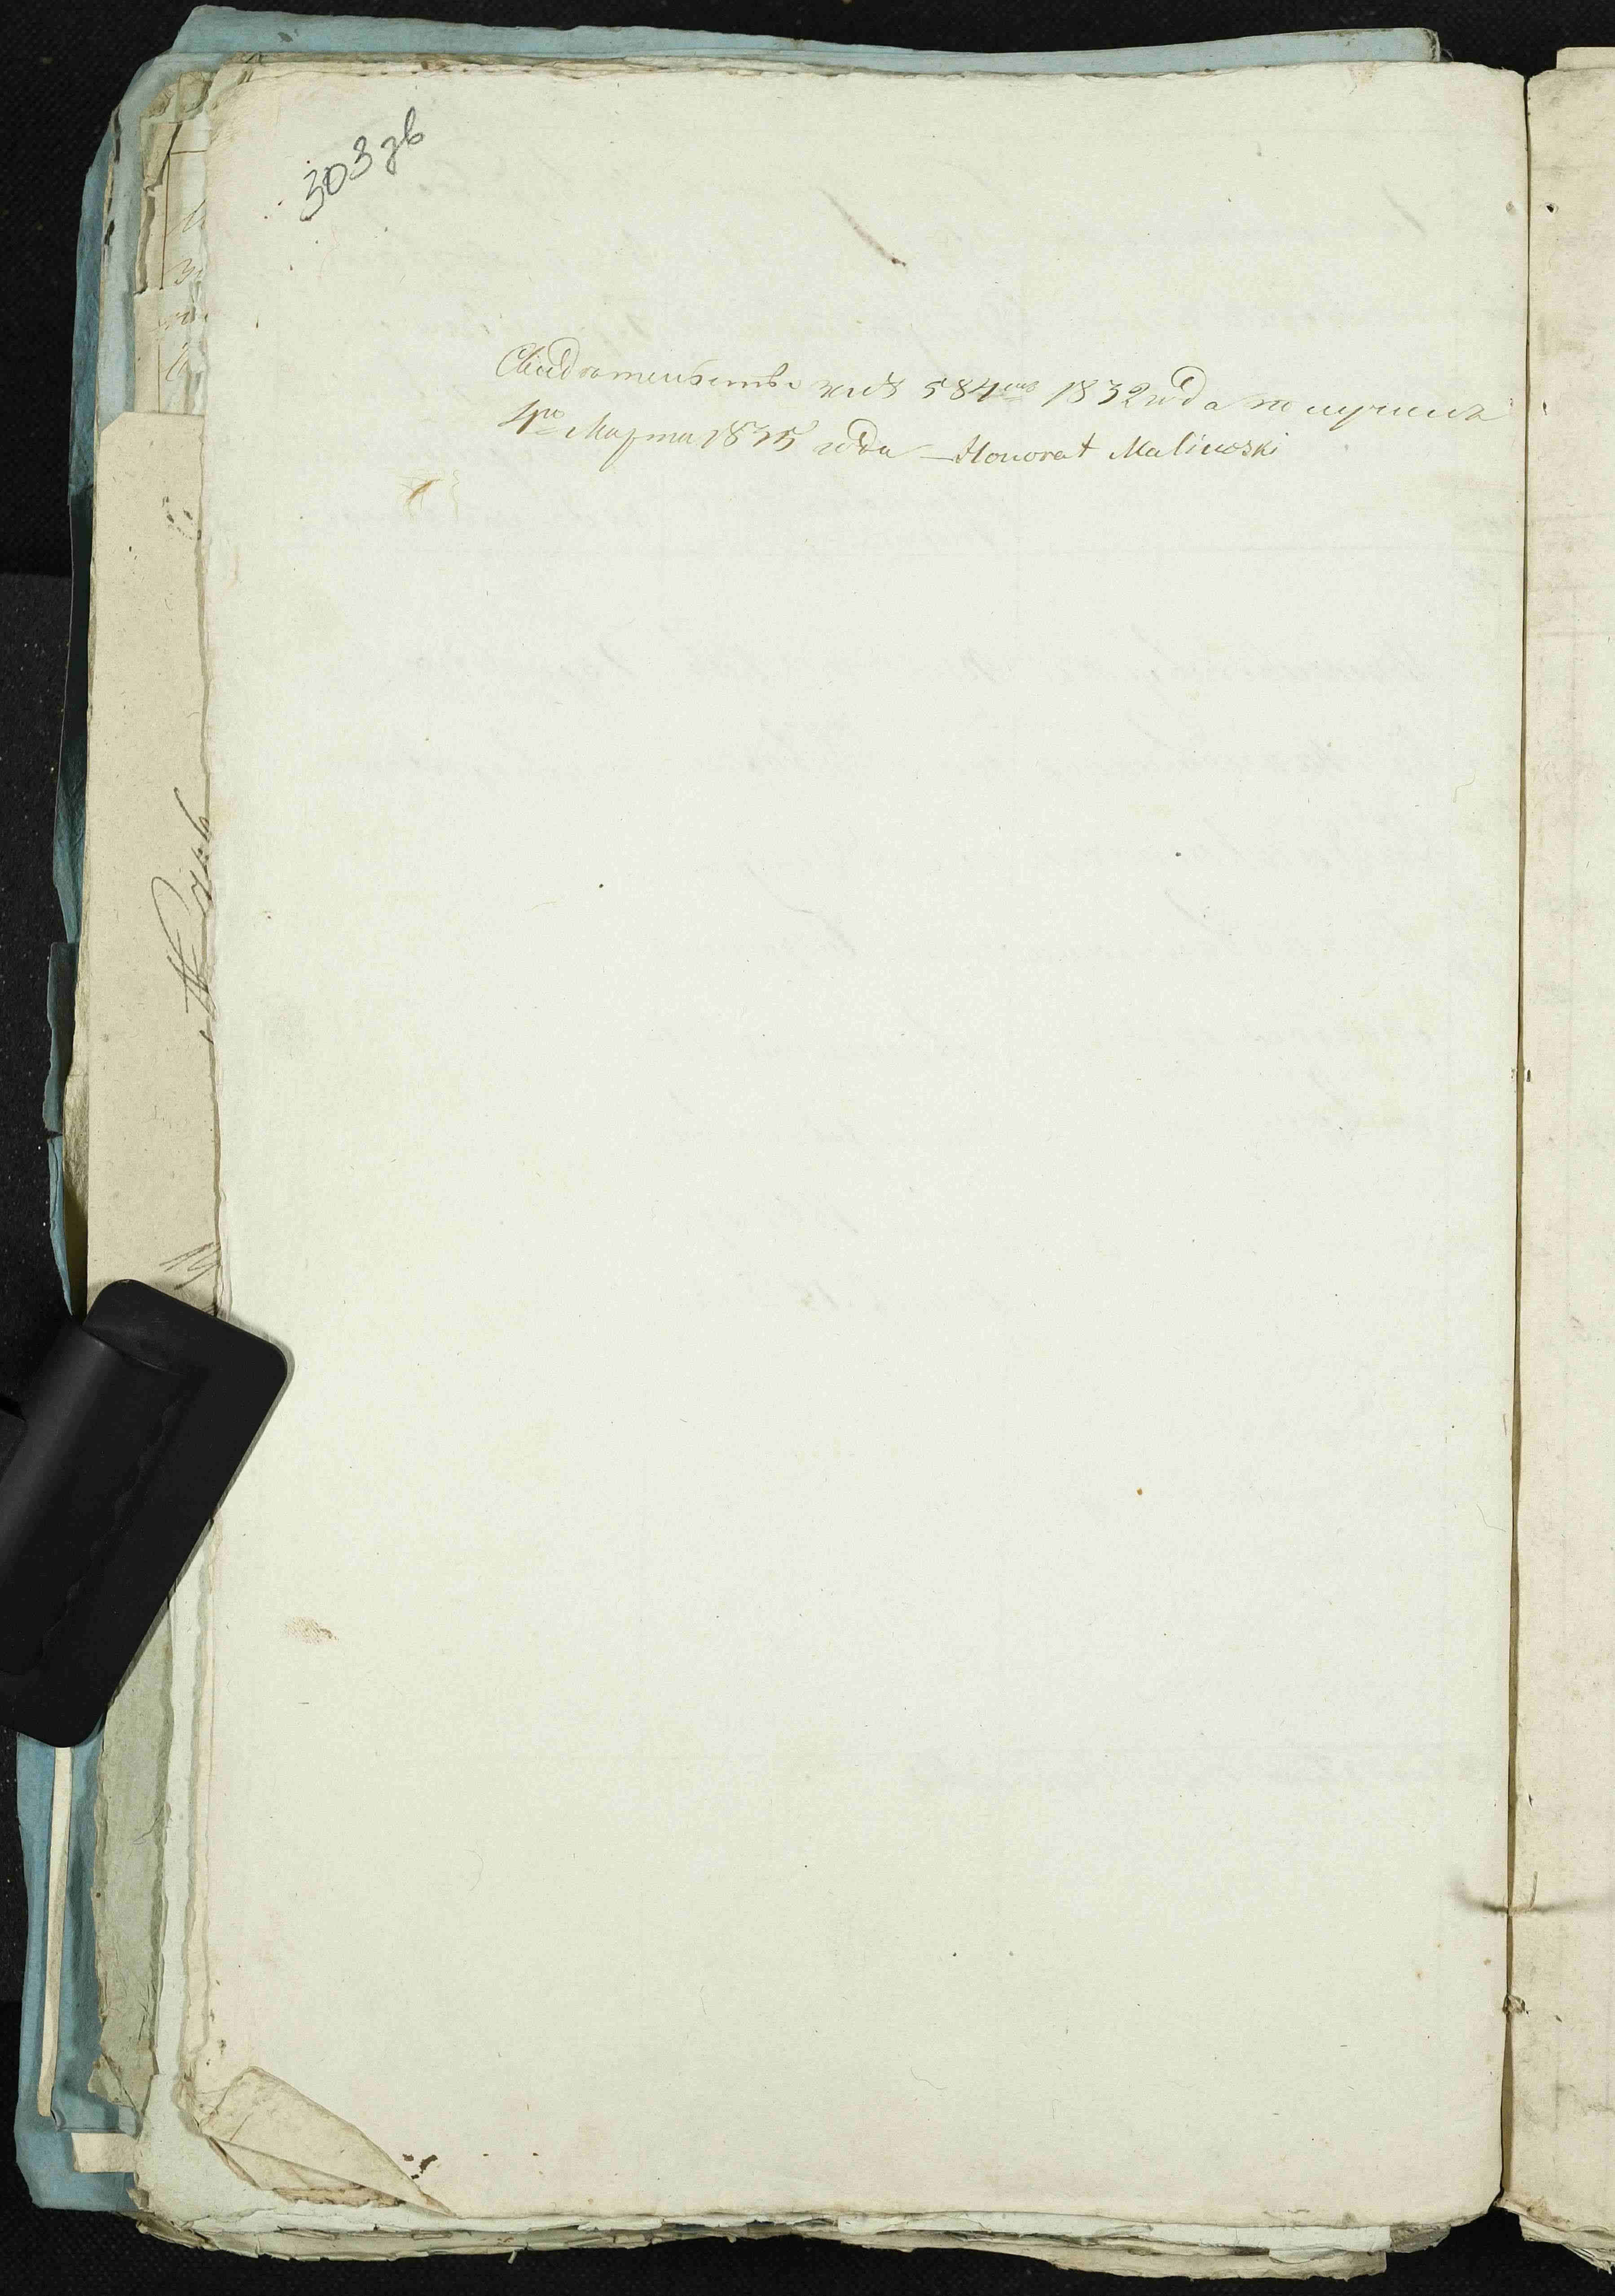 303 зв
Свидетельство под 584мъ 1832 года получилъ
4го Марта 1835 года — Honorat Malinoski